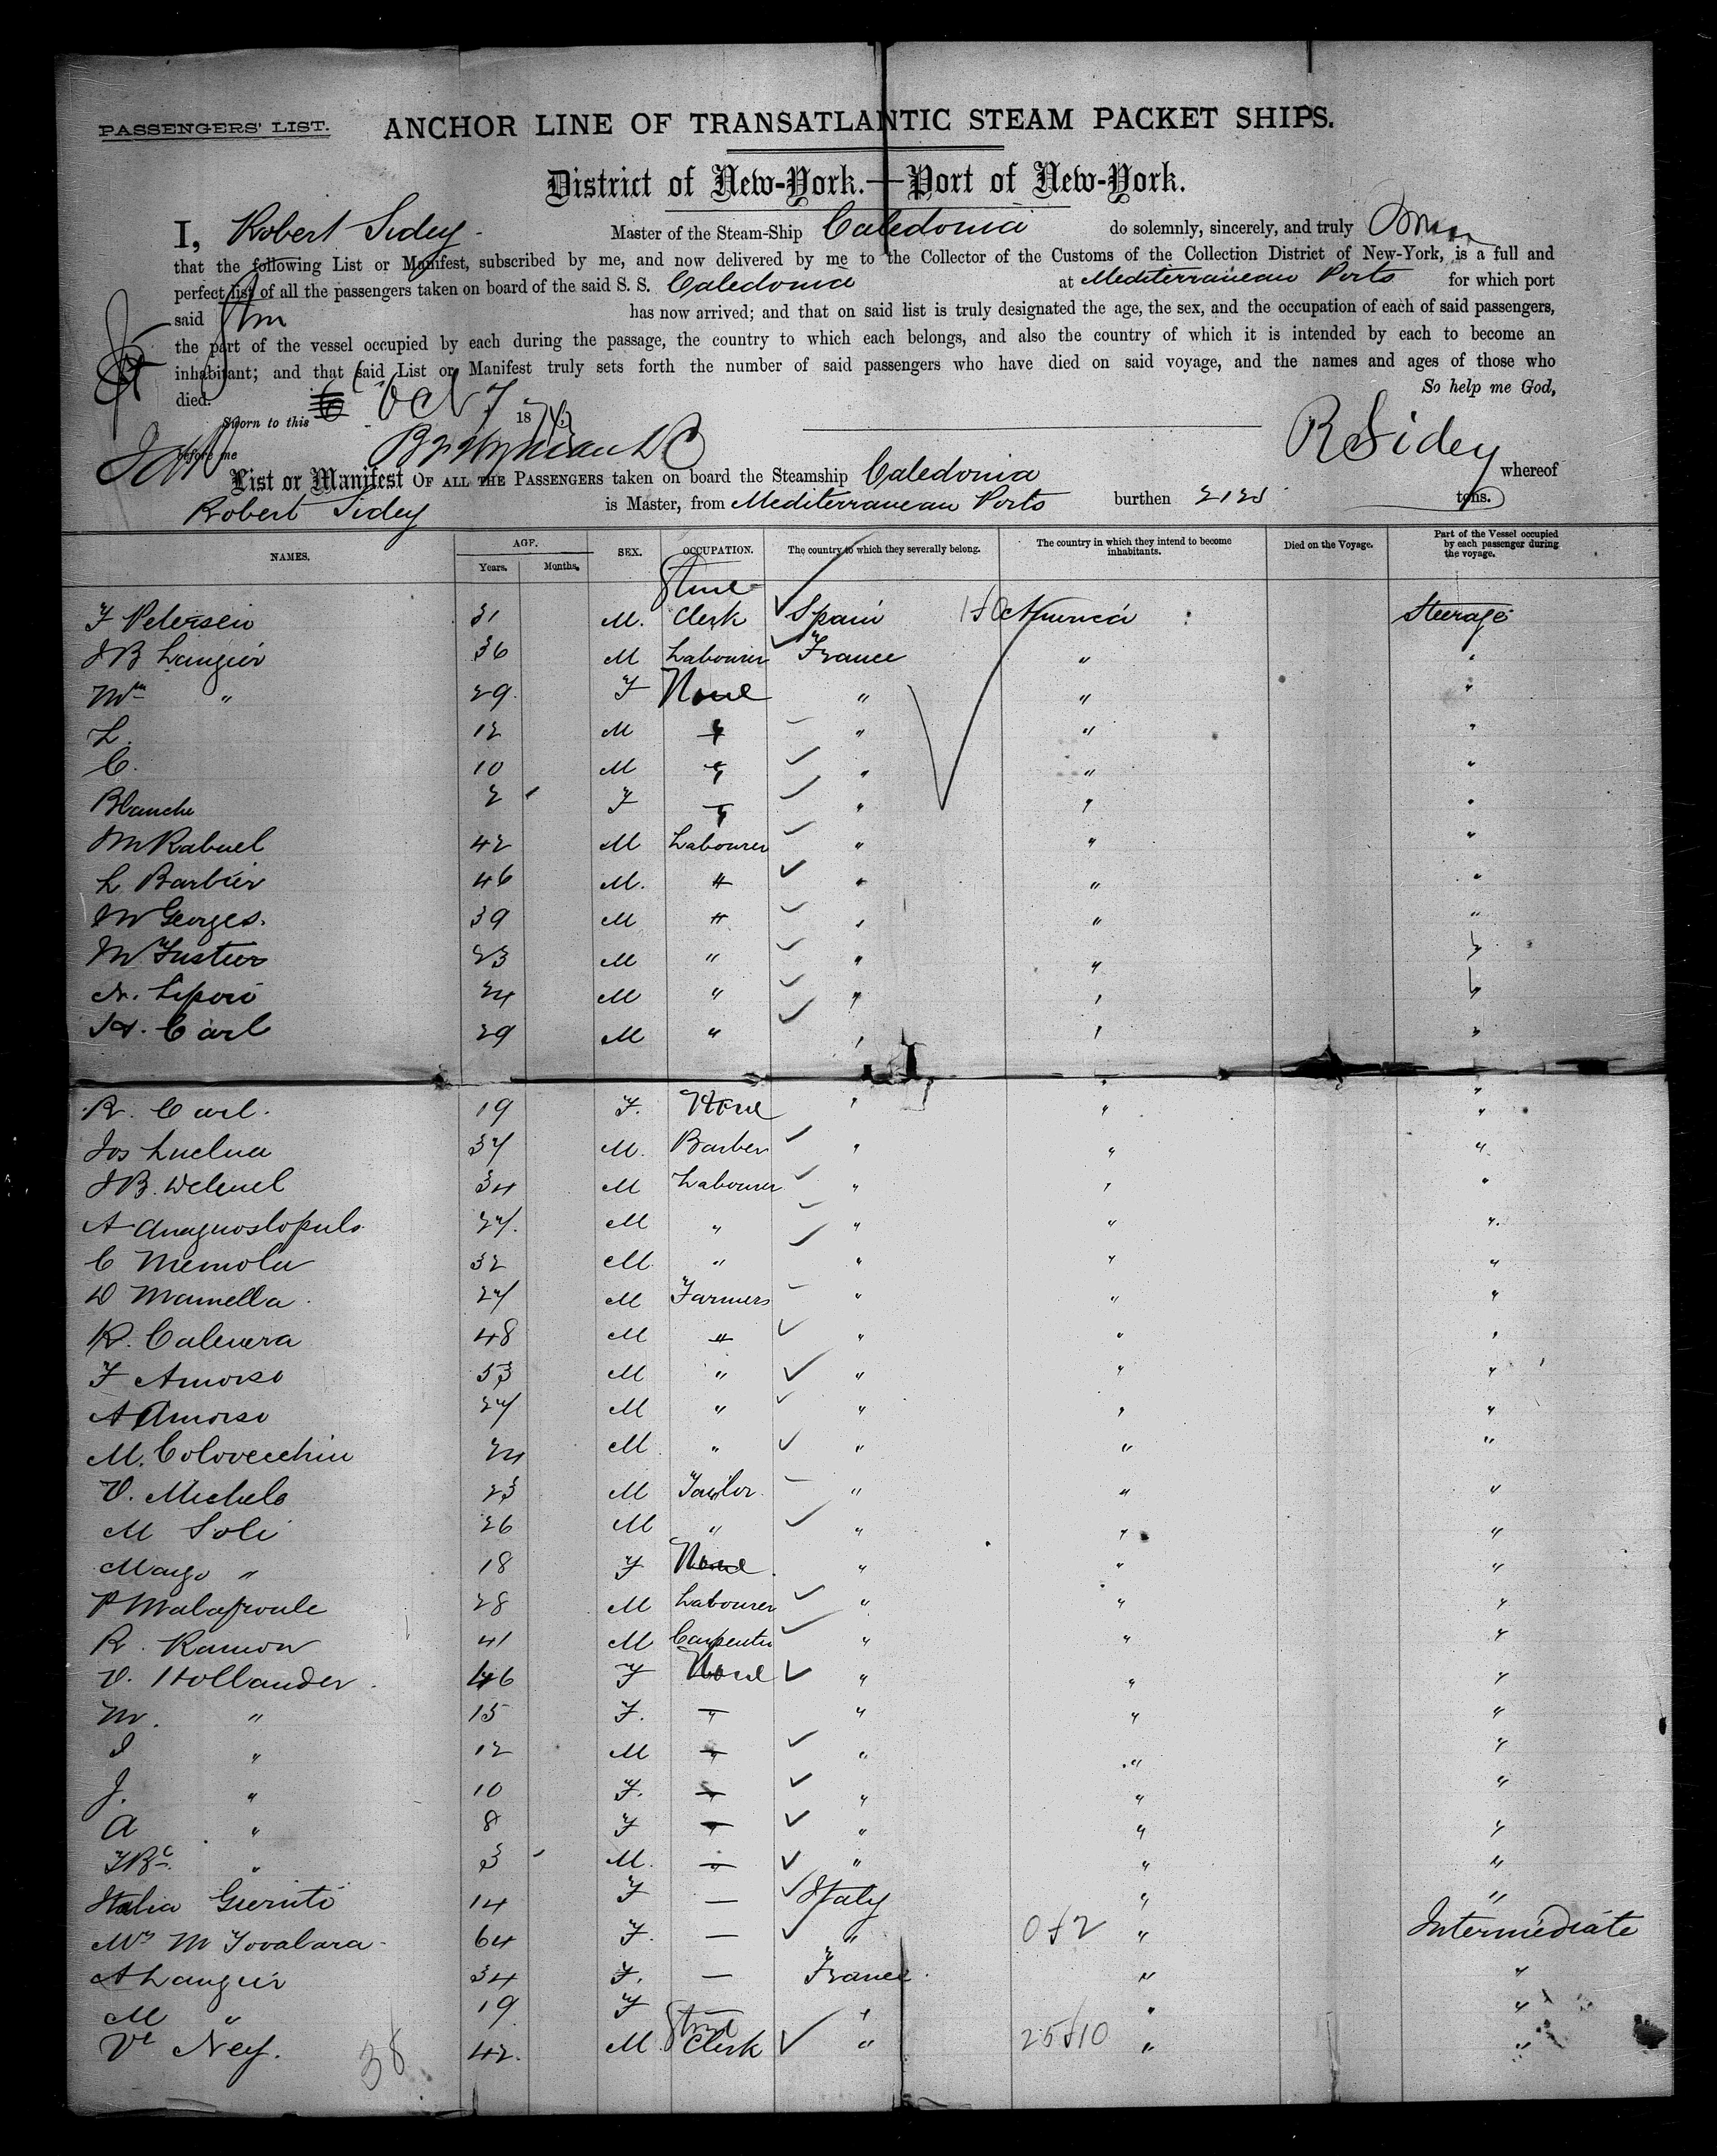 PASSENGERS' LIST. ANCHOR LINE OF TRANSATLANTIC STEAM PACKET SHIPS.
District of New-York.—Port of New-York.
I, Robert Sidey Master of the Steam-Ship Caledonia do solemnly, sincerely, and truly
that the following List or Manifest, subscribed by me, and now delivered by me to the Collector of the Customs of the Collection District of New-York, is a full and
perfect list of all the passengers taken on board of the said S. S. Caledonia at Mediterranean Ports for which port
said has now arrived; and that on said list is truly designated the age, the sex, and the occupation of each of said passengers,
the part of the vessel occupied by each during the passage, the country to which each belongs, and also the country of which it is intended by each to become an
inhabitant; and that said List or Manifest truly sets forth the number of said passengers who have died on said voyage, and the names and ages of those who
died. So help me God,
Sworn to this Oct 7 18
before me R Sidey
List or Manifest OF ALL THE PASSENGERS taken on board the Steamship Caledonia whereof
Robert Sidey is Master, from Mediterranean Ports burthen 2125 tons.
NAMES. AGE. Years. Months. SEX. OCCUPATION. The country to which they severally belong. The country in which they intend to become inhabitants. Died on the Voyage. Part of the Vessel occupied by each passenger during the voyage.
F Petersen 31 M. Clerk Spain America Steerage
J B Laugier 36 M Labourer France " "
Mm " 29 F None " " "
L. 12 M " " " "
C. 10 M " " " "
Blanche 2 F " " " "
M Rabuel 42 M Labourer " " "
L Barbier 46 M. " " " "
M Georges. 39 M " " " "
M Fustier 23 M " " " "
24 M " " " "
H. Carl 29 M " " " "
R. Carl. 19 F. None " " "
Jos 37 M. Barber " " "
J B. 34 M Labourer " " "
A Anagnostopulo 27. M " " " "
C Memola 32 M. " " " "
D Mamella 27 M Farmers " " "
R. Calenera 48 M " " " "
F Amorso 53 M " " " "
A Amorso 27 M " " " "
M. Colovecchia 24 M " " " "
V. Michele 23 M Tailor " " "
M Soli 26 M " " " "
Margo " 18 F None " " "
28 M Labourer " " "
R. Ramon 41 M Carpenter " " "
V. Hollander 46 F None " " "
M. " 15 F. " " " "
I " 12 M " " " "
J. " 10 F. " " " "
A " 8 F " " " "
" 3 M. " " " "
Italia 14 F — Italy " "
Mrs M Tovalara 64 F. — " 0 f 2 " Intermediate
A Laugier 34 F. — France " "
M " 19 F " " "
Ve Ney. 42. M. Clerk " 25 f 10 " "
38